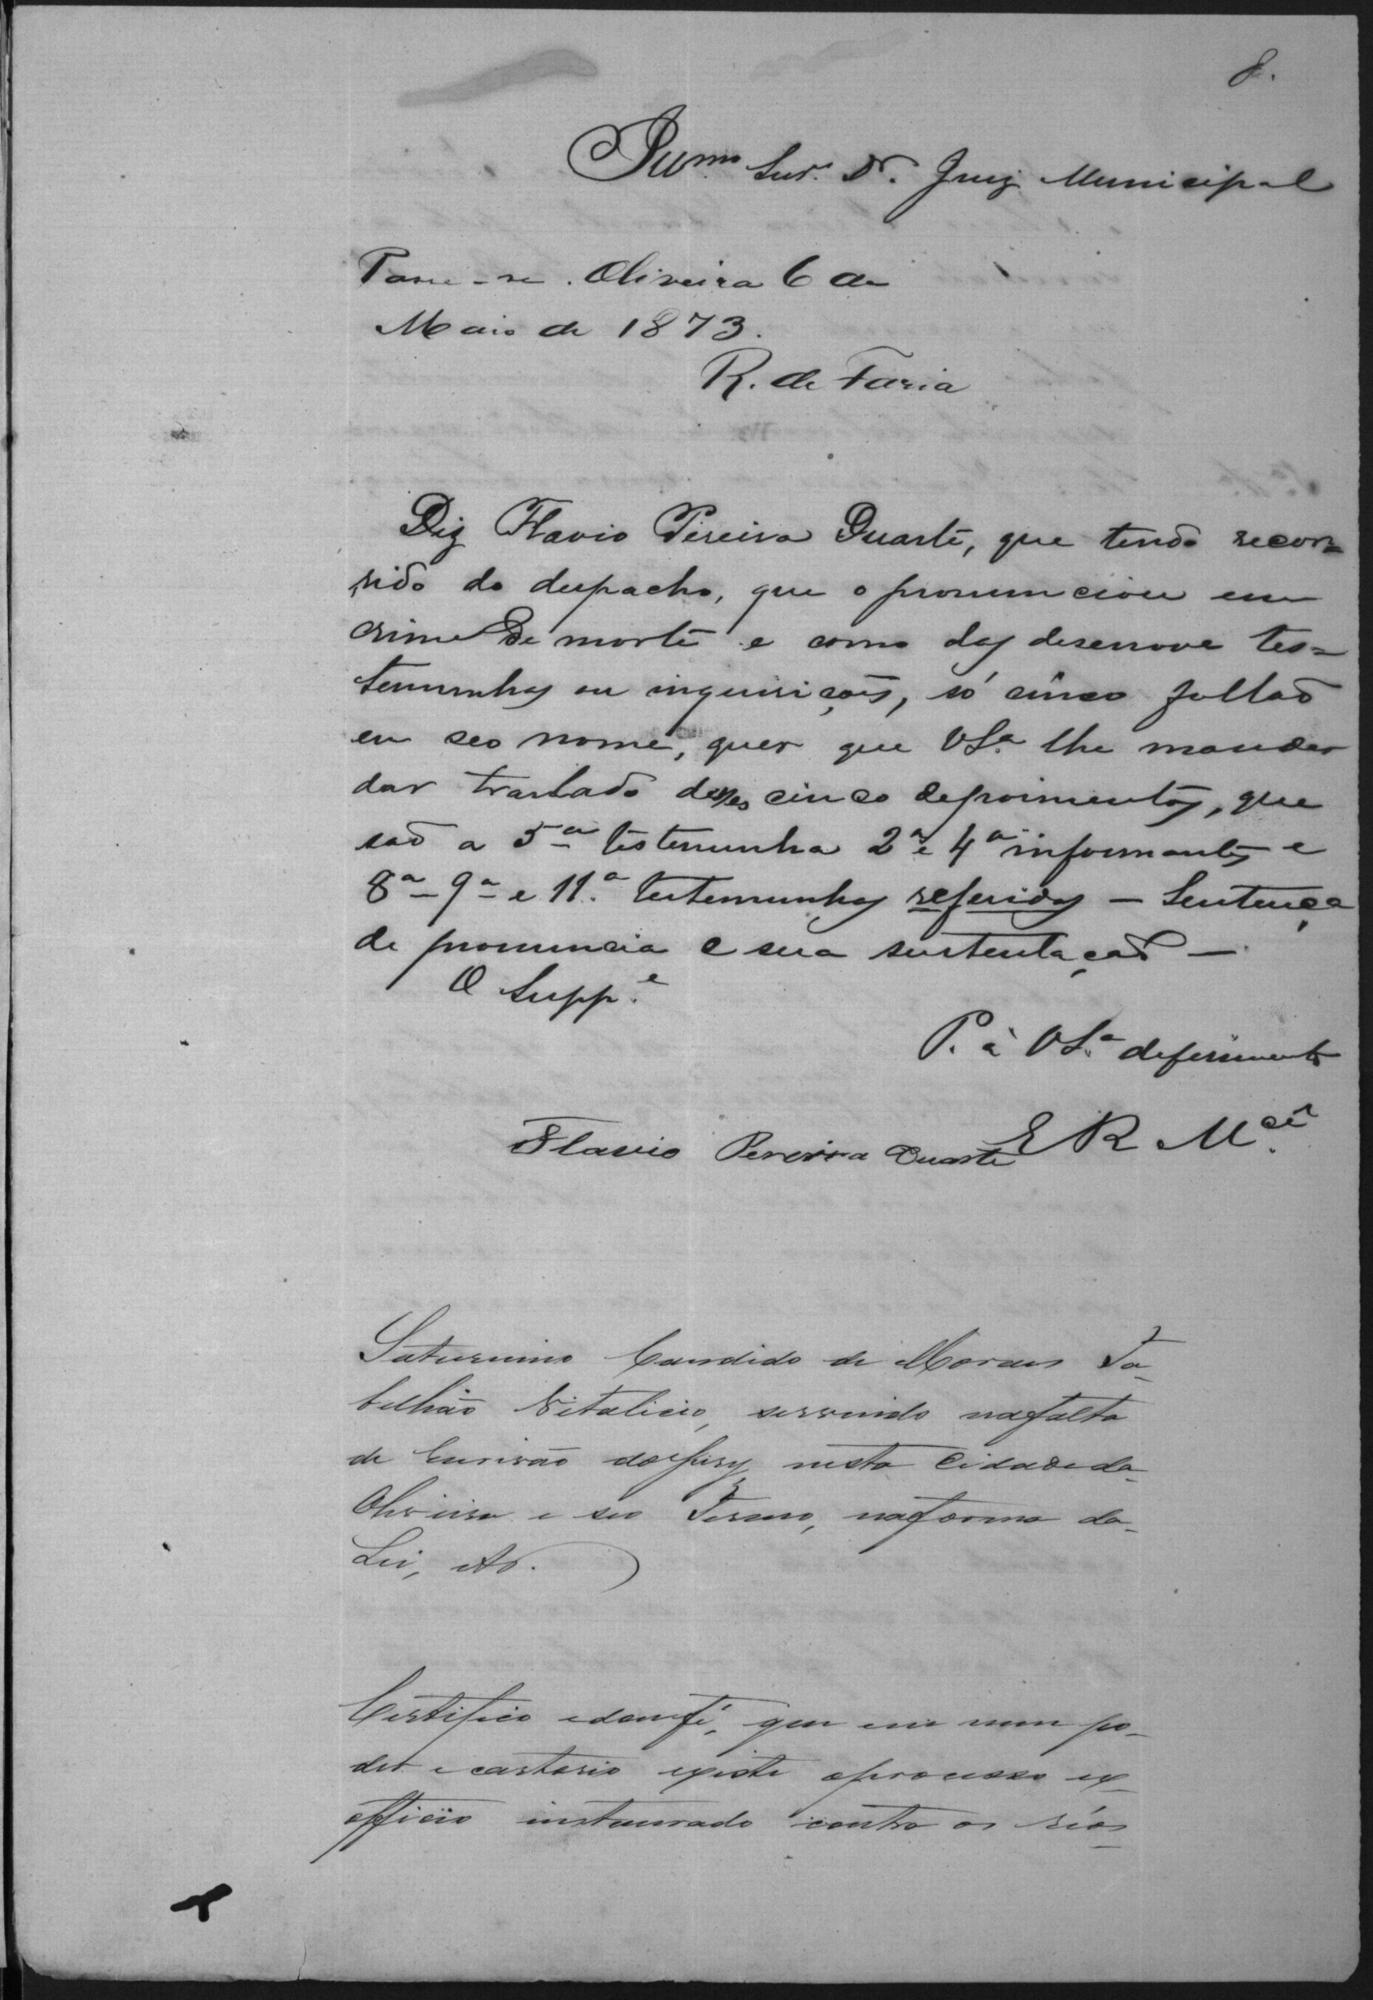 8.
Illmo Snr. Dr. Juiz Municipal
Passe-se. Oliveira 6 de
Maio de 1873.
R. de Faria
Diz Flavio Pereira Duarte, que tendo recor=
rido do despacho, que o pronunciou em
crime de morte e como das desenove tes=
temunhas ou inquirições, só cinco fallaõ
en seo nome, quer que VSª lhe mande
dar traslado desses cinco depoimentos, que
saõ a 5ª testemunha 2ª e 4ª informantes e
8ª 9ª e 11.ª testemunhas referidas – Sentença
de pronuncia e sua sustentaçaõ –
O Supp.e
P. à VSª deferimento
E R Mcê.
Flavio Pereira Duarte
Saturnino Candido de Moraes Ta-
bellião Vitalicio, servindo na falta
de Escrivão do Jury nesta Cidade da
Oliveira e seo Termo, na forma da
Lei, etc.
Certifico e dou fé, que em meu po-
der e cartorio existe o processo ex
officio instaurado contra os réos